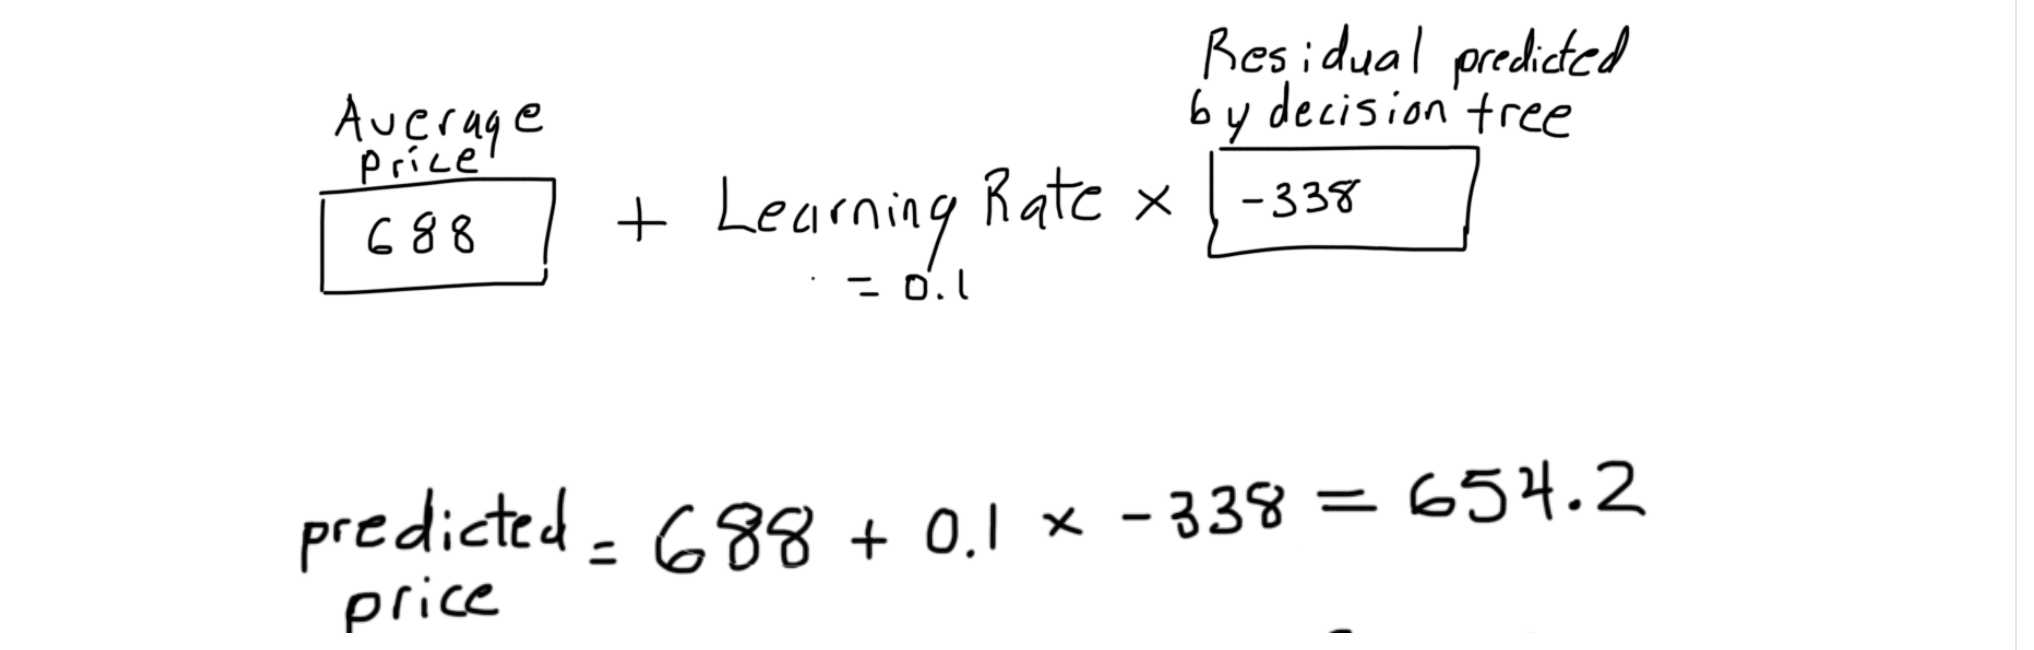 Average
price
688
+ Learning Rate ×
= 0.1
Residual predicted
by decision tree
-338
predicted = 688 + 0.1 × -338 = 654.2
price